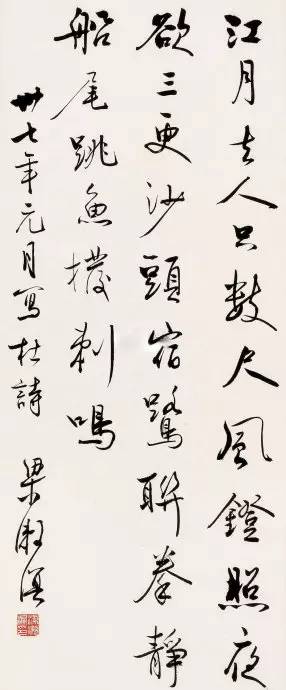 江月去人只數尺風鐙照夜
欲三更沙頭宿鷺聯拳靜
船尾跳魚撥刺鳴
卅七年元月寫杜詩 梁漱溟